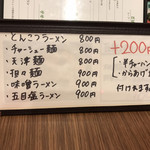 ・とんこつラーメン 800円
・チャーシュー麺 800円
・天津麺 800円
・担々麺 900円
・味噌ラーメン 900円
・五目塩ラーメン 900円
+200円
・半チャーハン
・からあげ
付けれます